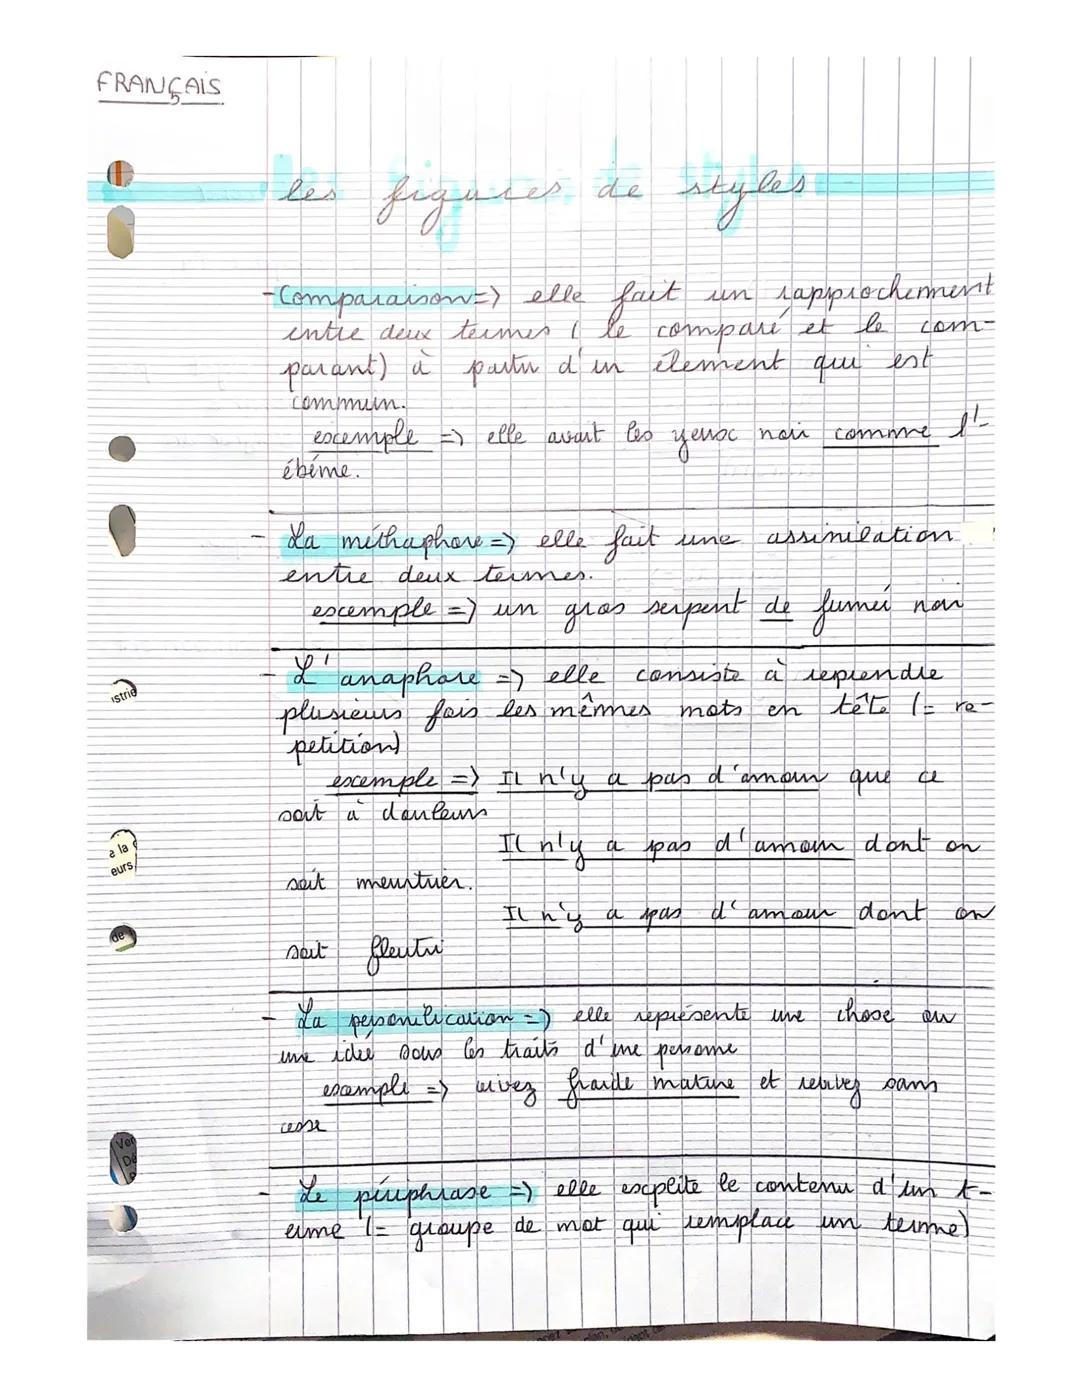 FRANÇAIS
les figures de styles
- Comparaison => elle fait un rapprochement
entre deux termes ( le comparé et le com-
parant) à partir d'un élement qui est
commun.
exemple => elle avait les yeux noir comme l'-
ébéme.
- La méthaphore => elle fait une assimilation
entre deux termes.
exemple => un gros serpent de fumée noir
- L'anaphore => elle consiste à reprendre
plusieurs fois les mêmes mots en tête (= re-
petition)
exemple => Il n'y a pas d'amour que ce
soit à douleurs
Il n'y a pas d'amour dont on
soit meurtrier.
Il n'y a pas d'amour dont on
soit fleutri
- La personification => elle représente une chose ou
une idée sous les traits d'une personne
exemple => vivez froide mature et revivez sans
cesse
- Le périphrase => elle explite le contenu d'un t-
erme (= groupe de mot qui remplace un terme)
istrie
e la
eurs
de
Ver
De